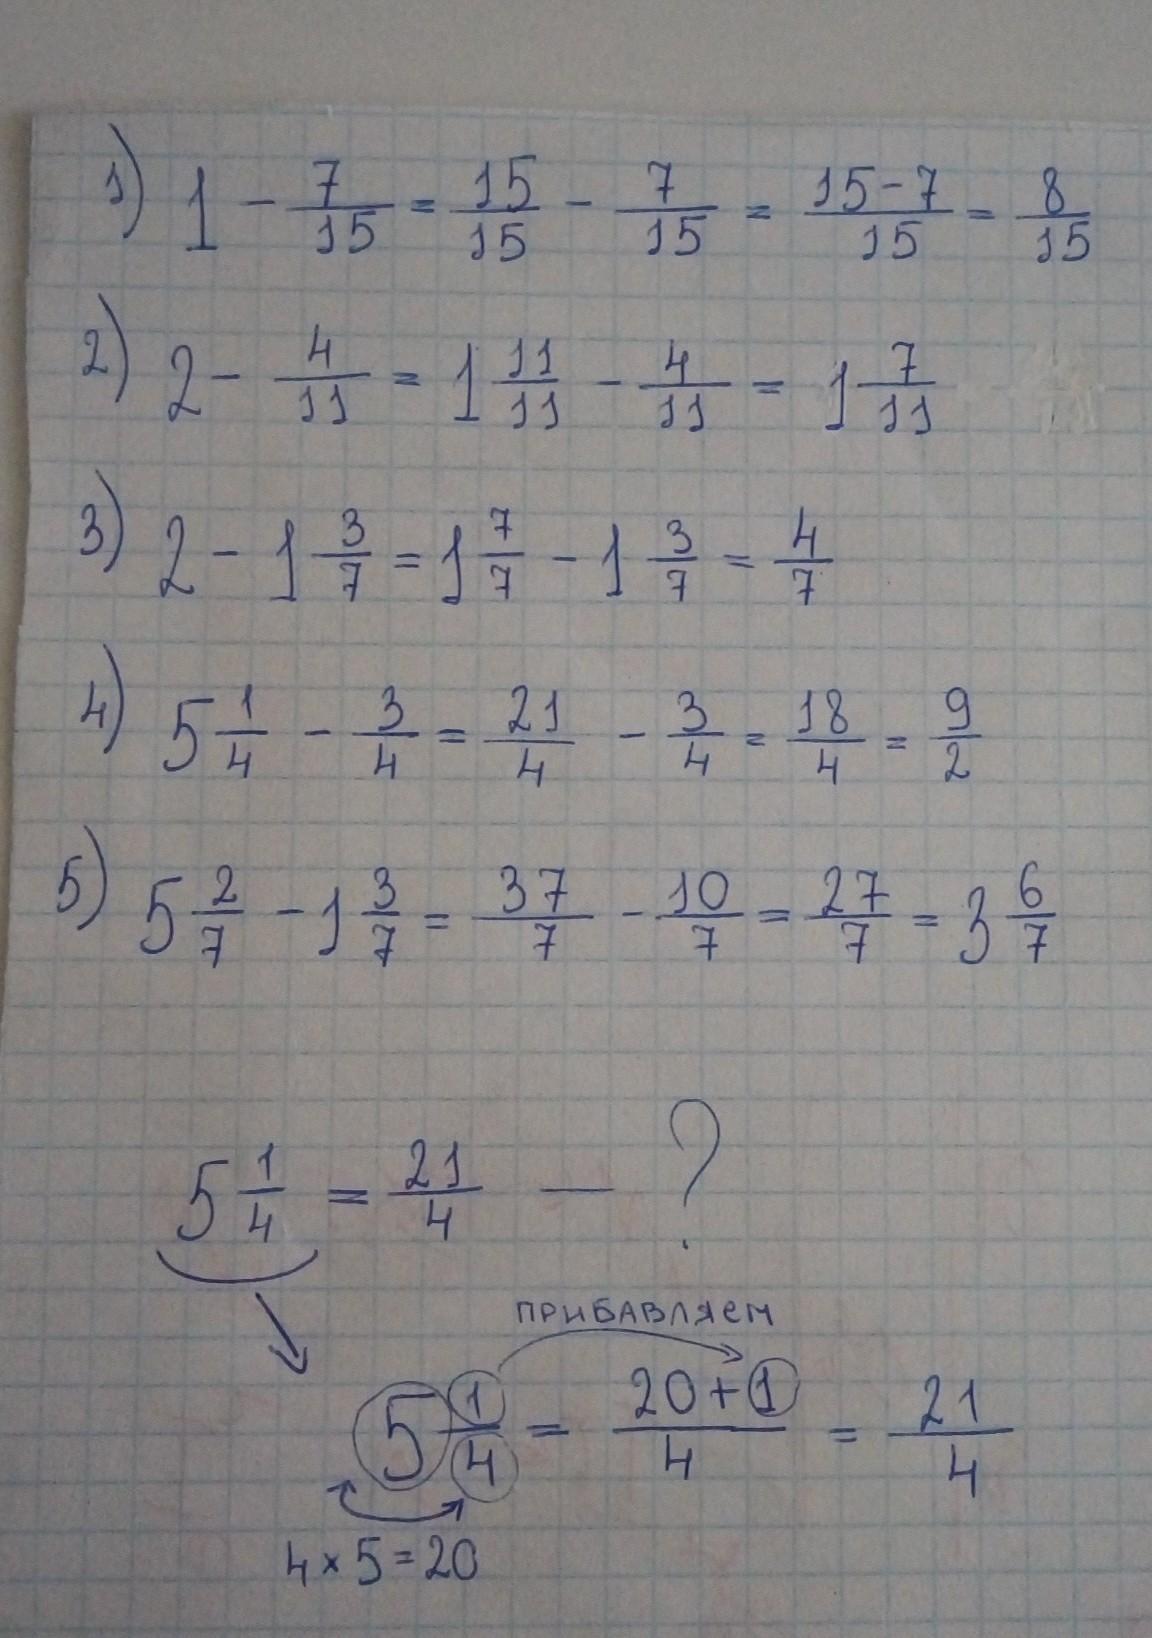 1) 1 - 7/15 = 15/15 - 7/15 = 15-7/15 = 8/15
2) 2 - 4/11 = 1 11/11 - 4/11 = 1 7/11
3) 2 - 1 3/7 = 1 7/7 - 1 3/7 = 4/7
4) 5 1/4 - 3/4 = 21/4 - 3/4 = 18/4 = 9/2
5) 5 2/7 - 1 3/7 = 37/7 - 10/7 = 27/7 = 3 6/7
5 1/4 = 21/4 — ?
ПРИБАВЛЯЕМ
5 1/4 = 20+1/4 = 21/4
4 × 5 = 20